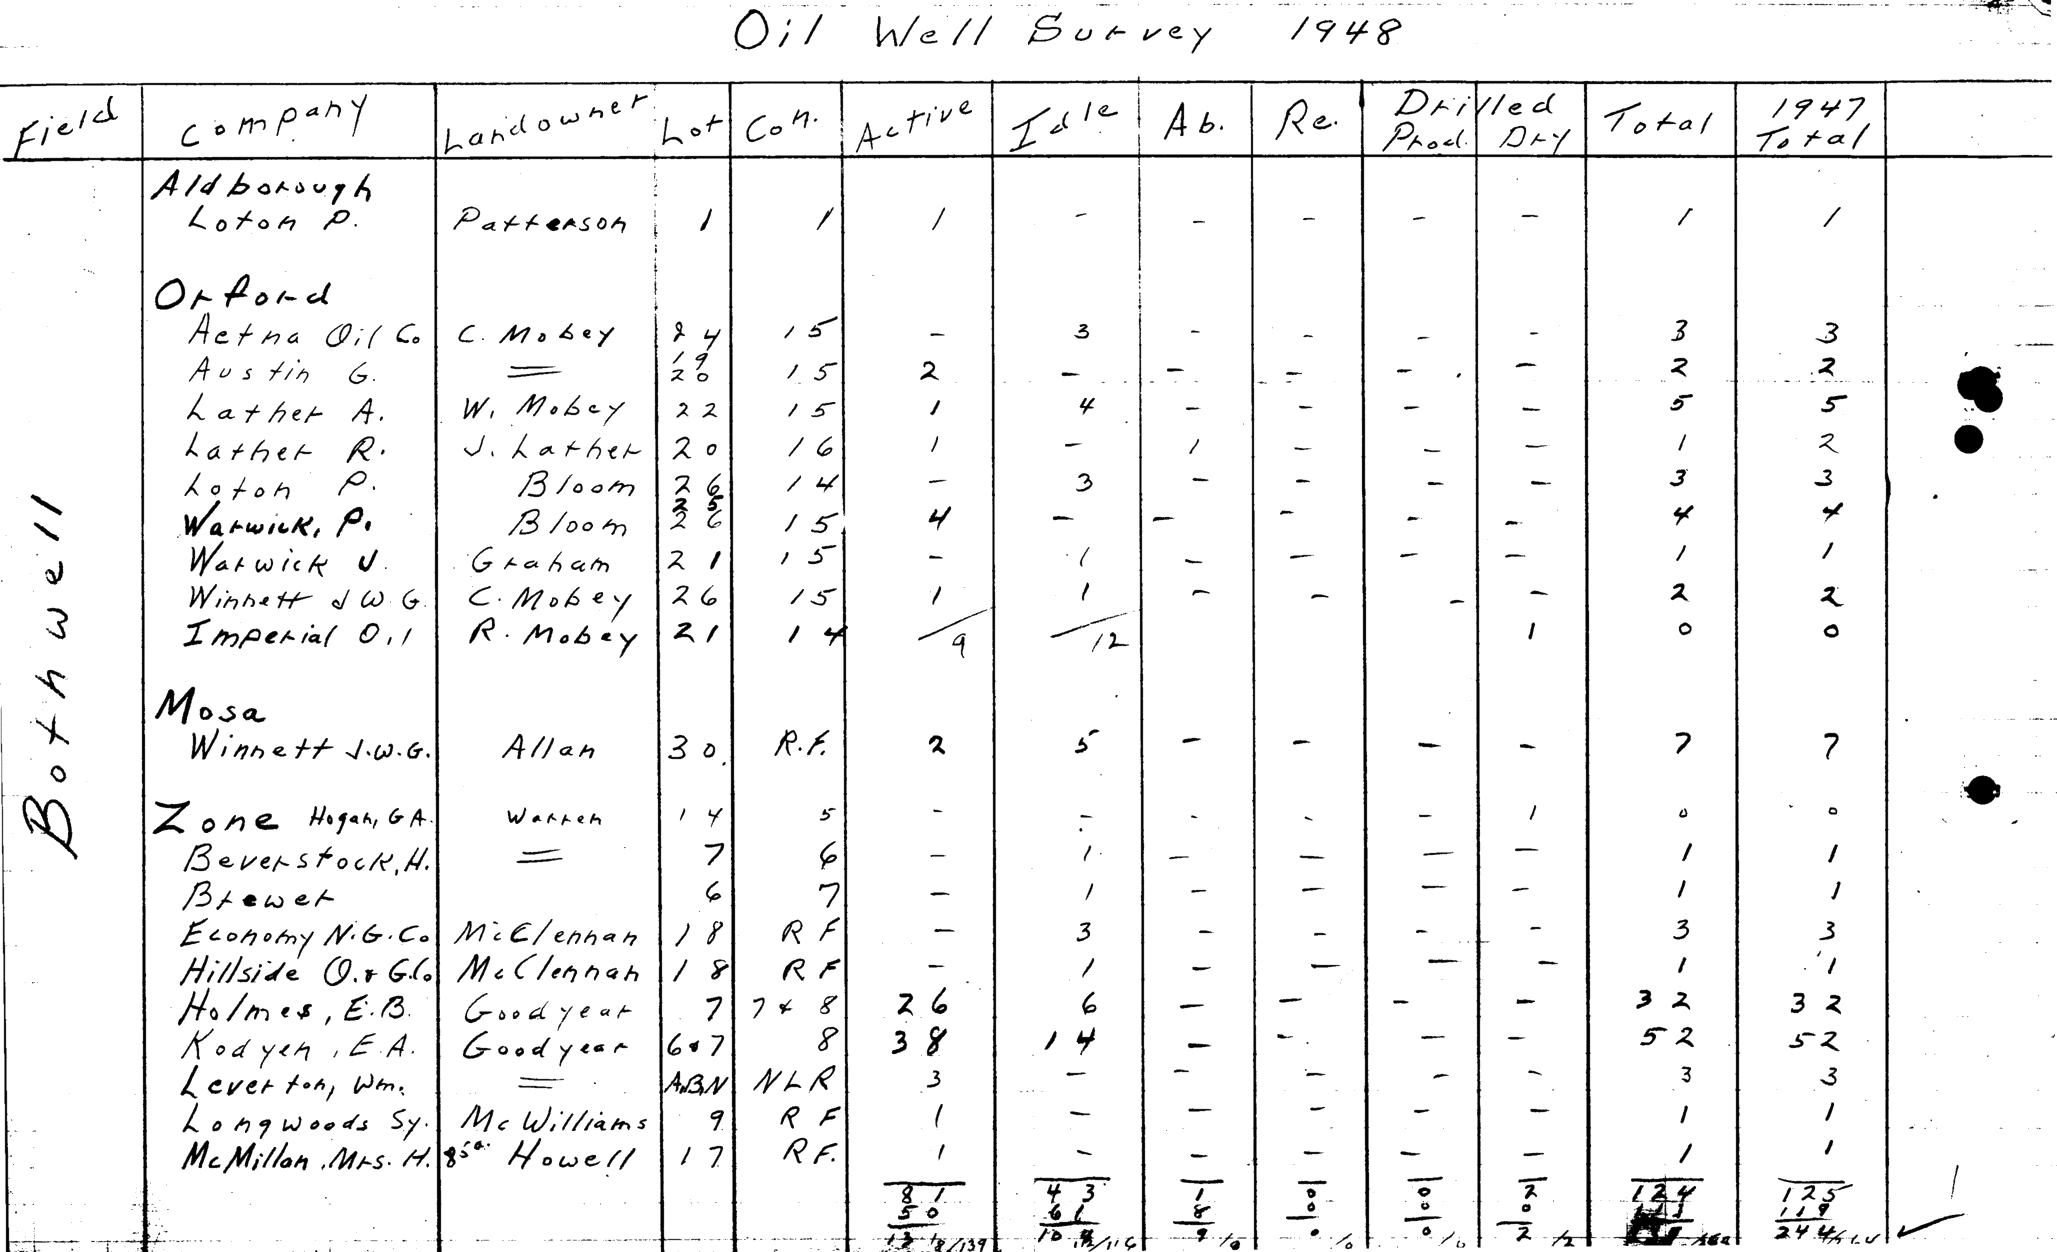 Oil Well Survey 1948
Field Company Landowner Lot Con. Active Idle Ab. Re. Drilled Prod. Dry Total 1947 Total
Bothwell
Aldborough
Loton P. Patterson 1 1 1 - - - - - 1 1
Orford
Aetna Oil Co C. Mobey 24 15 - 3 - - - - 3 3
Austin G. = 19 20 15 2 - - - - - 2 2
Lather A. W. Mobey 22 15 1 4 - - - - 5 5
Lather R. J. Lather 20 16 1 - 1 - - - 1 2
Loton P. Bloom 26 14 - 3 - - - - 3 3
Warwick, P. Bloom 25 26 15 4 - - - - - 4 4
Warwick J. Graham 21 15 - 1 - - - - 1 1
Winnett J W G. C. Mobey 26 15 1 1 - - - - 2 2
Imperial Oil R. Mobey 21 14 /9 /12 1 0 0
Mosa
Winnett J.W.G. Allan 30. R.F. 2 5 - - - - 7 7
Zone Hogan, G A. Warren 14 5 - - - - - 1 0 0
Beverstock, H. = 7 6 - 1 - - - - 1 1
Brewer 6 7 - 1 - - - - 1 1
Economy N.G.Co McClennan 18 R F - 3 - - - - 3 3
Hillside O. & G.Co McClennan 18 R F - 1 - - - - 1 1
Holmes, E.B. Goodyear 7 7 & 8 26 6 - - - - 32 32
Kodyen, E.A. Goodyear 6&7 8 38 14 - - - - 52 52
Leverton, Wm. = A.B.N N L R 3 - - - - - 3 3
Longwoods Sy. McWilliams 9 R F 1 - - - - - 1 1
McMillan, Mrs. H. Howell 17 R F. 1 - - - - - 1 1
81 43 1 0 0 2 124 125
50 61 8 0 0 0 119
9 0 0 2 244